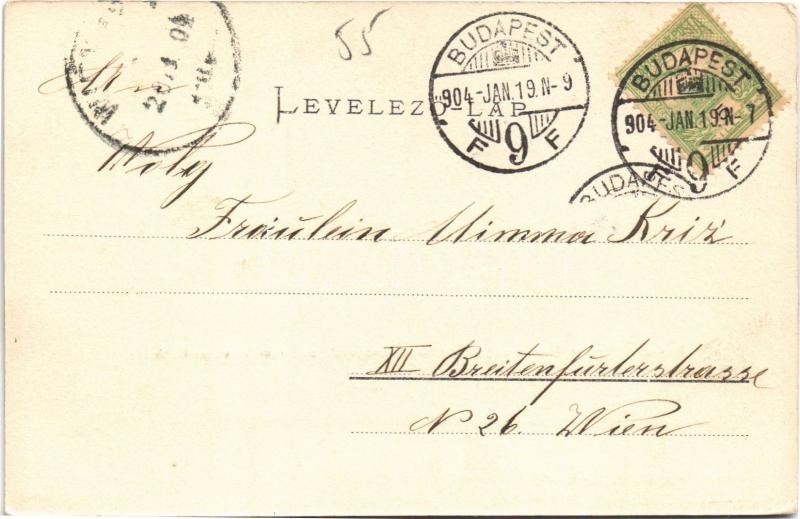 55
BUDAPEST
904-JAN.19.N-9
F 9 F
BUDAPEST
904-JAN.19.N-7
F 9 F
BUDAPES
LEVELEZŐ-LAP
An
Wolg
Fräulein Mimma Kriz
XII Breitenfurterstrasse
N 26. Wien